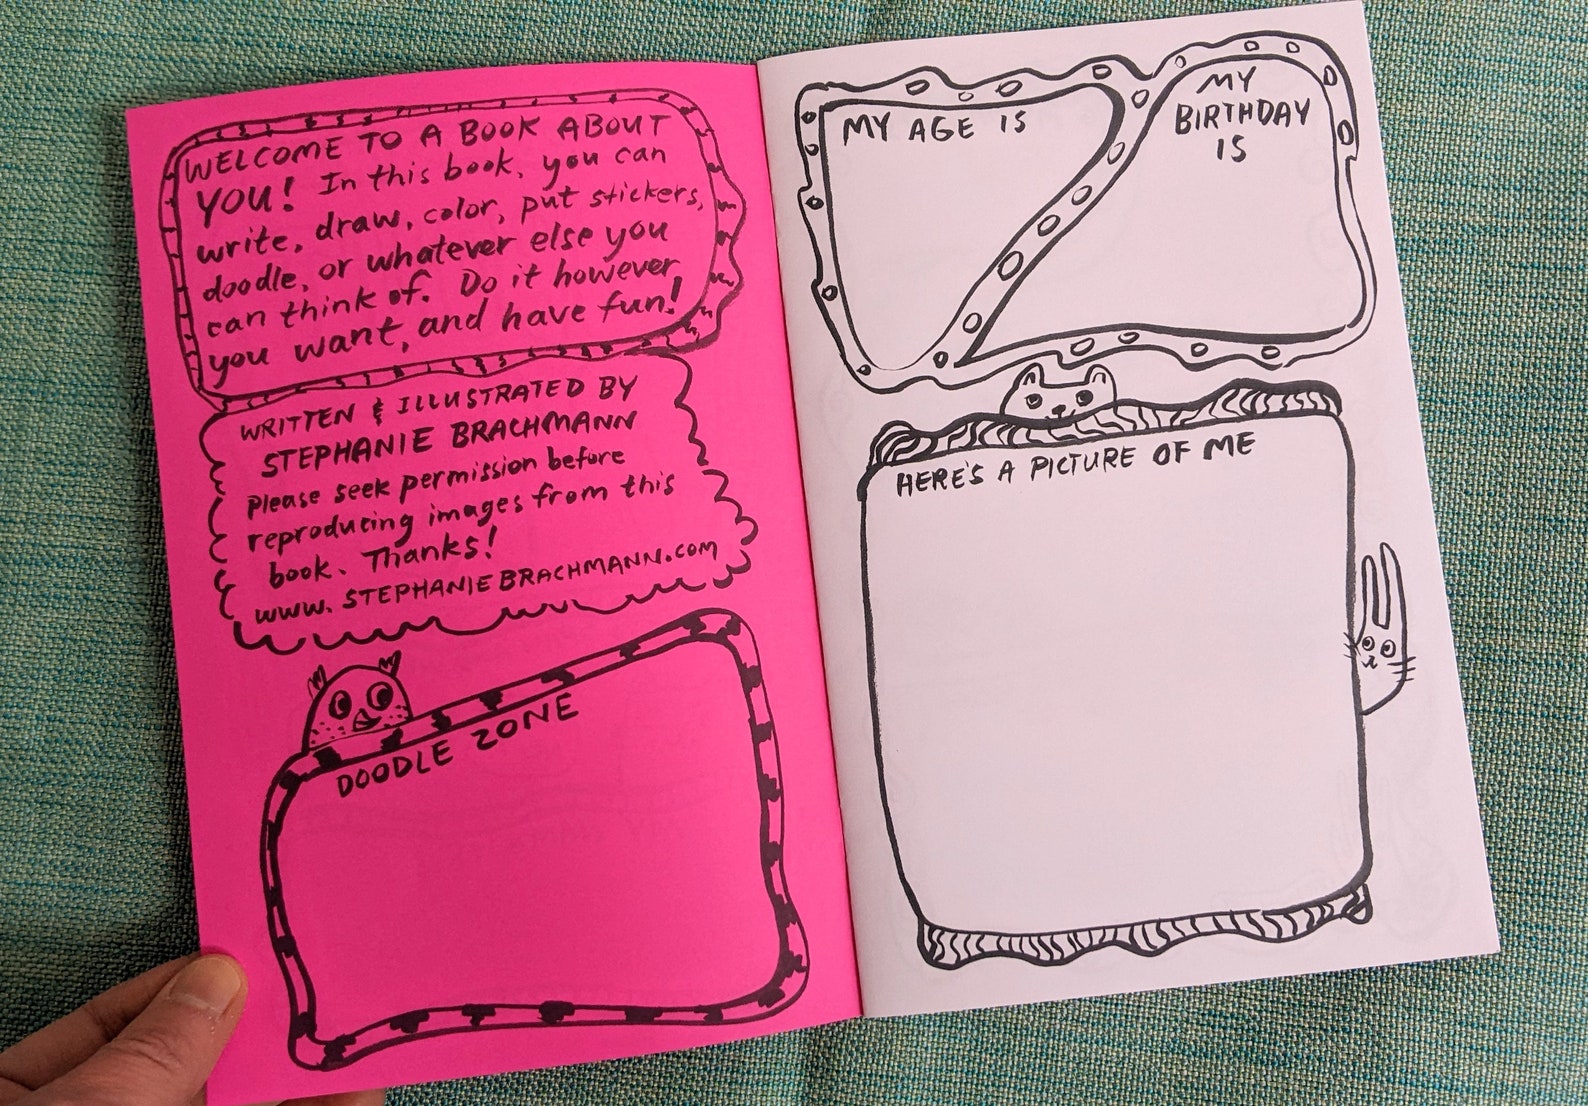 WELCOME TO A BOOK ABOUT
YOU! In this book, you can
write, draw, color, put stickers,
doodle, or whatever else you
can think of. Do it however
you want, and have fun!
WRITTEN & ILLUSTRATED BY
STEPHANIE BRACHMANN
Please seek permission before
reproducing images from this
book. Thanks!
www.STEPHANIEBRACHMANN.com
DOODLE ZONE
MY AGE IS
MY
BIRTHDAY
IS
HERE'S A PICTURE OF ME